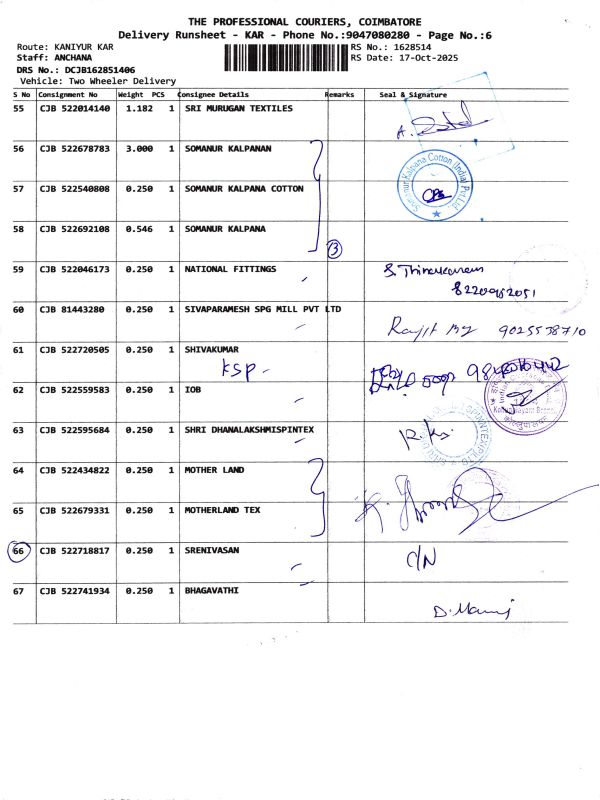 THE PROFESSIONAL COURIERS, COIMBATORE
Delivery Runsheet - KAR - Phone No.:9047080280 - Page No.:6
Route: KANIYUR KAR RS No.: 1628514
Staff: ANCHANA RS Date: 17-Oct-2025
DRS No.: DCJB162851406
Vehicle: Two Wheeler Delivery
S No Consignment No Weight PCS Consignee Details Remarks Seal & Signature
55 CJB 522014140 1.182 1 SRI MURUGAN TEXTILES
56 CJB 522678783 3.000 1 SOMANUR KALPANAN
57 CJB 522540808 0.250 1 SOMANUR KALPANA COTTON
Somanur Kalpana Cotton (India) Pvt Ltd.
58 CJB 522692108 0.546 1 SOMANUR KALPANA
3
59 CJB 522046173 0.250 1 NATIONAL FITTINGS
8220962051
60 CJB 81443280 0.250 1 SIVAPARAMESH SPG MILL PVT LTD
9025538710
61 CJB 522720505 0.250 1 SHIVAKUMAR
KSP -
62 CJB 522559583 0.250 1 IOB
63 CJB 522595684 0.250 1 SHRI DHANALAKSHMISPINTEX
64 CJB 522434822 0.250 1 MOTHER LAND
65 CJB 522679331 0.250 1 MOTHERLAND TEX
66 CJB 522718817 0.250 1 SRENIVASAN C/N
67 CJB 522741934 0.250 1 BHAGAVATHI